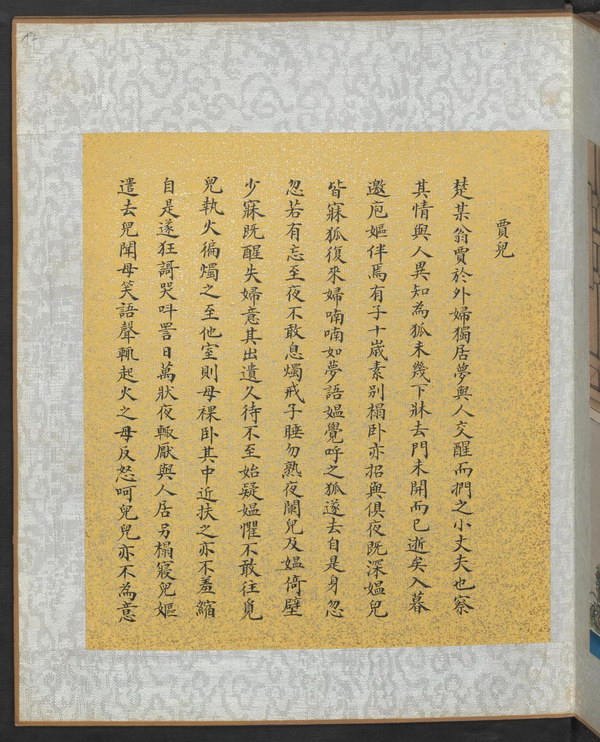 賈兒
楚某翁賈於外婦獨居夢與人交醒而捫之小丈夫也察
其情與人異知為狐未幾下牀去門未開而已逝矣入暮
邀庖媼伴焉有子十歲素别榻卧亦招與俱夜既深媼兒
皆寐狐復來婦喃喃如夢語媼覺呼之狐遂去自是身忽
忽若有忘至夜不敢息燭戒子睡勿熟夜闌兒及媼倚壁
少寐既醒失婦意其出遺久待不至始疑媼懼不敢往覓
兒執火徧燭之至他室則母裸卧其中近扶之亦不羞縮
自是遂狂謌哭呌詈日萬狀夜輒厭與人居另榻寢兒媼
遣去兒聞母笑語聲輒起火之母反怒呵兒兒亦不為意